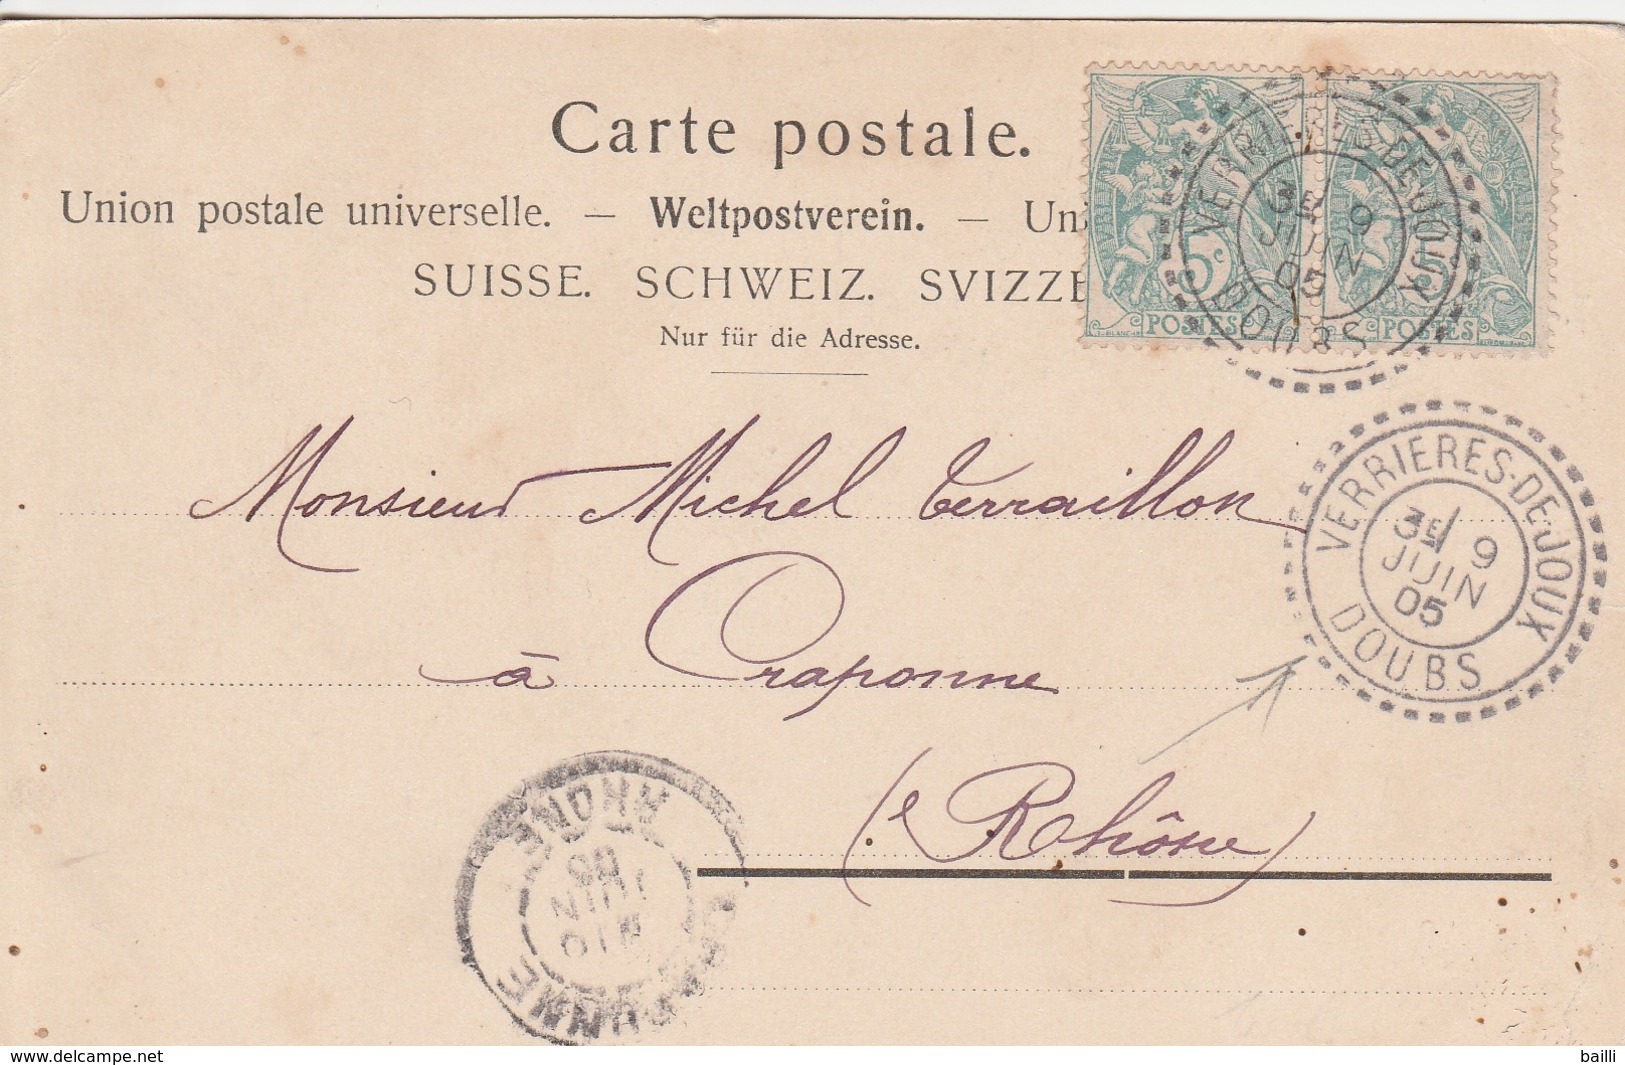 Carte postale.
Union postale universelle. — Weltpostverein. — Uni
SUISSE. SCHWEIZ. SVIZZE
Nur für die Adresse.
5c 
POSTES POSTES
VERRIERES-DE-JOUX
3E 9
JUIN
05
DOUBS
Monsieur Michel Terraillon
VERRIERES-DE-JOUX
3E 9
JUIN
05
DOUBS
à Craponne
(Rhône)
CRAPONNE
RHONE
10
JUIN
05
www.delcampe.net
bailli